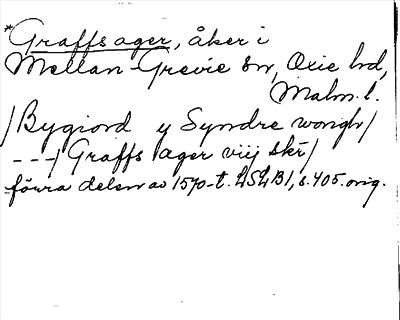 *Graffs ager, åker i
Mellan-Grevie sn, Oxie hd,
Malm. l.
/Bygiord y Syndre wongh/
---/Graffs ager viij skr/
förra delen av 1570-t. LSLB1, s. 405. orig.